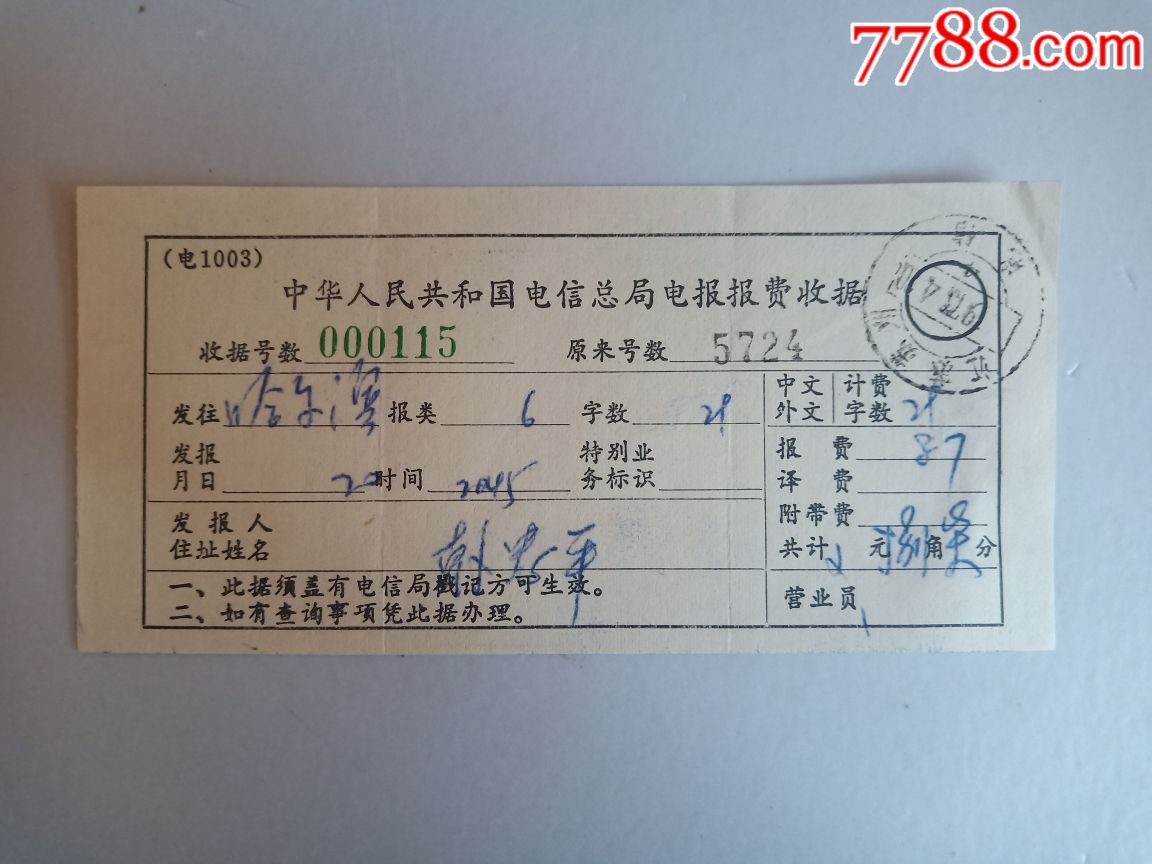 7788.com
(电1003)
中华人民共和国电信总局电报报费收据
收据号数 000115 原来号数 5724
发往 哈尔滨 报类 6 字数 29
中文 计费
外文 字数 29
发报 特别业
月日 20 时间 2045 务标识
报费 87
译费
附带费
发报人
住址姓名
共计 元 捌 角 柒 分
一、此据须盖有电信局戳记方可生效。
二、如有查询事项凭此据办理。
营业员
江苏